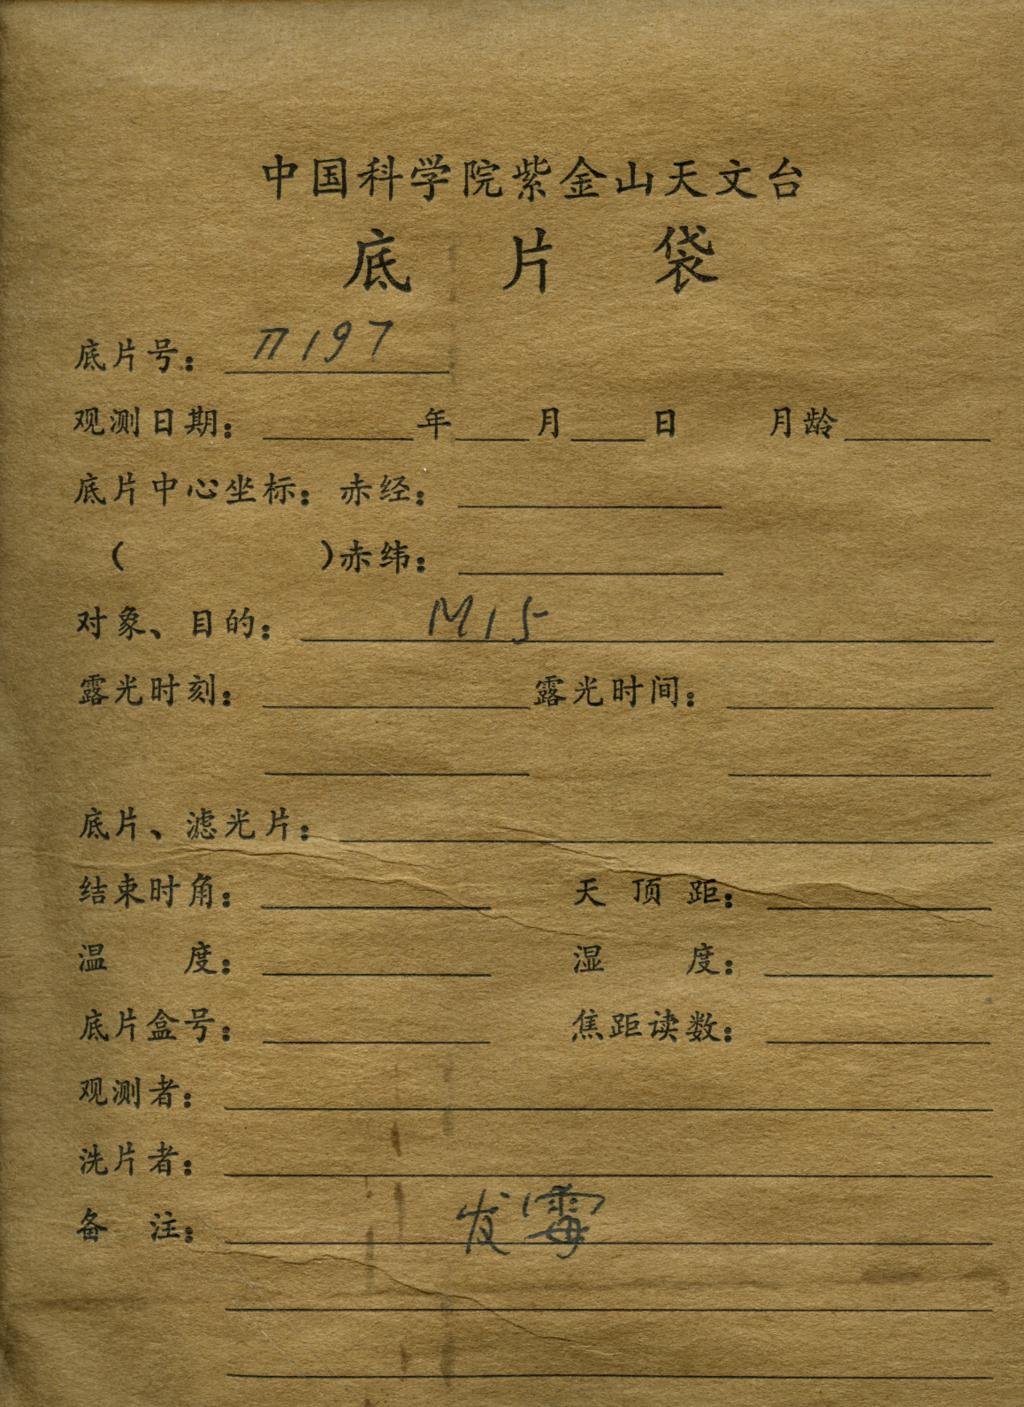 中国科学院紫金山天文台
底 片 袋
底片号： π197
观测日期： 年 月 日 月龄
底片中心坐标：赤经：
( )赤纬：
对象、目的： M15
露光时刻： 露光时间：
底片、滤光片：
结束时角： 天顶距：
温 度： 湿 度：
底片盒号： 焦距读数：
观测者：
洗片者：
备 注： 发霉